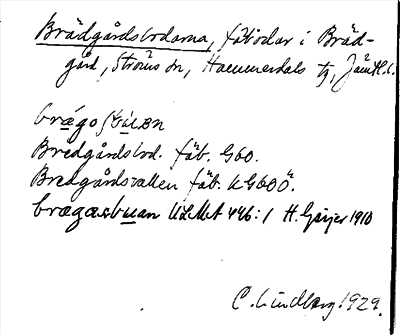 Brädgårdsbodarna, fäbodar i Bräd-
gård, Ströms sn, Hammerdals tg, Jämtl. l.
Brädgårdsbod. fäb. G60.
Bredgårdsvallen fäb. KG60Ö.
brægasbuan ULMA 446:1 H. Geijer 1910
C. Lindberg 1929.